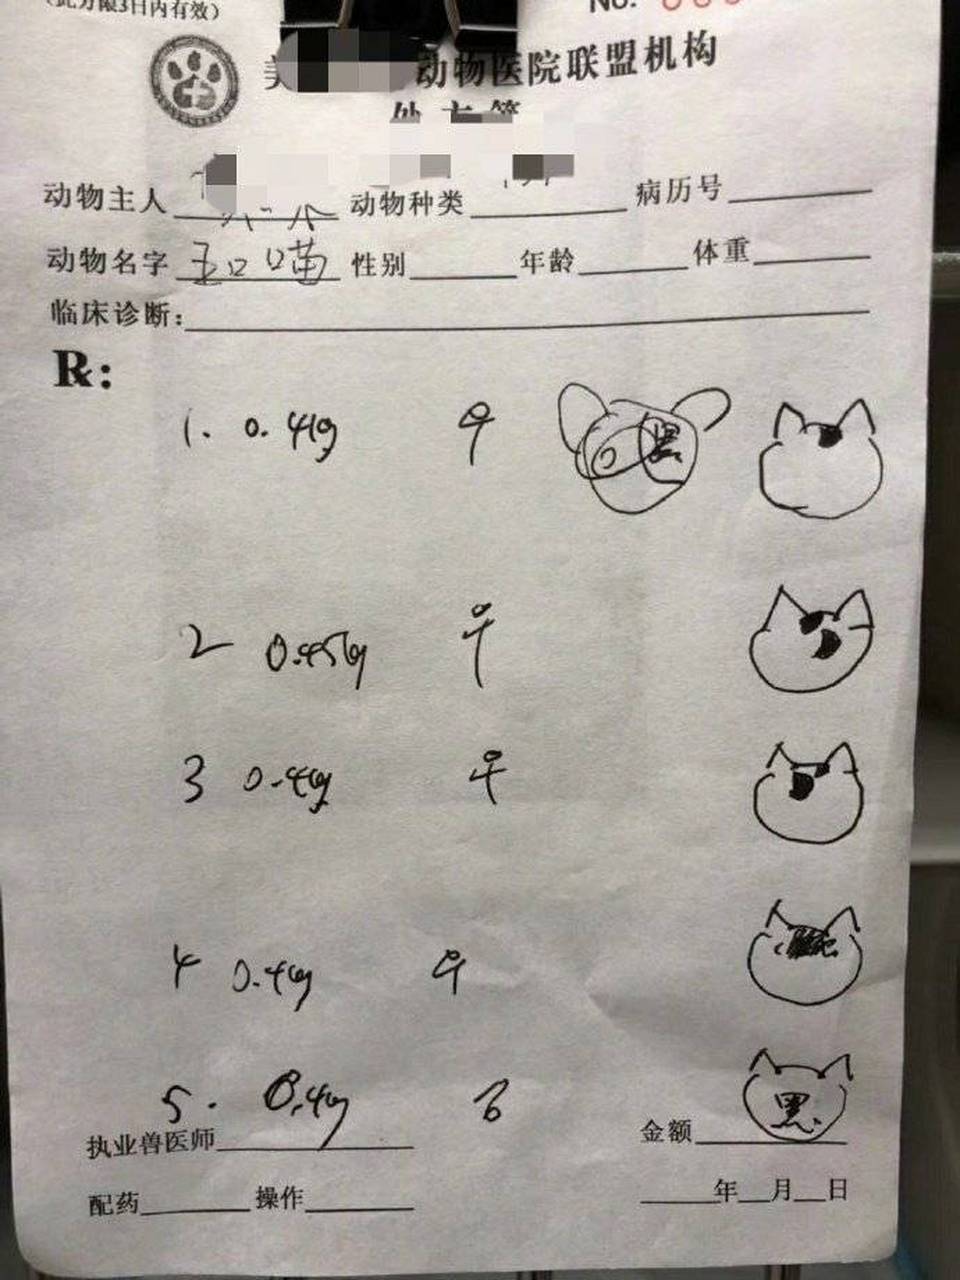 （此方限3日内有效）
No.
美 动物医院联盟机构
处方笺
动物主人 动物种类 病历号
动物名字 五口喵 性别 年龄 体重
临床诊断：
R:
1. 0.41g ♀ 黑
2 0.45g ♀
3 0.4g ♀
4 0.4g ♀
5. 0.4g 黑
执业兽医师 金额
配药 操作 年 月 日